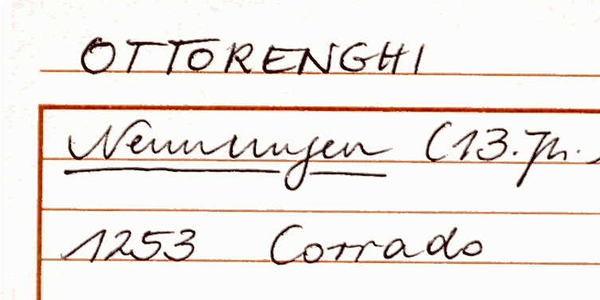 OTTORENGHI
Nennungen (13. Jh.
1253 Corrado